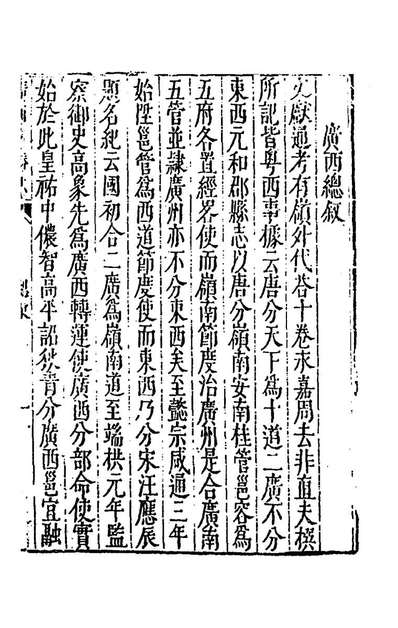 廣西總叙
文獻通考有嶺外代荅十卷永嘉周去非直夫撰
所記皆粵西事據云唐分天下爲十道二廣不分
東西元和郡縣志以唐分嶺南安南桂管邕容爲
五府各置經畧使而嶺南節度治廣州是合廣南
五管並隷廣州亦不分東西矣至懿宗咸通三年
始陞邕管爲西道節度使而東西乃分宋汪應辰
題名紀云國初合二廣爲嶺南道至端拱元年監
察御史高象先爲廣西轉運使廣西分部命使實
始於此皇祐中儂智高平詔狄青分廣西邕宜融